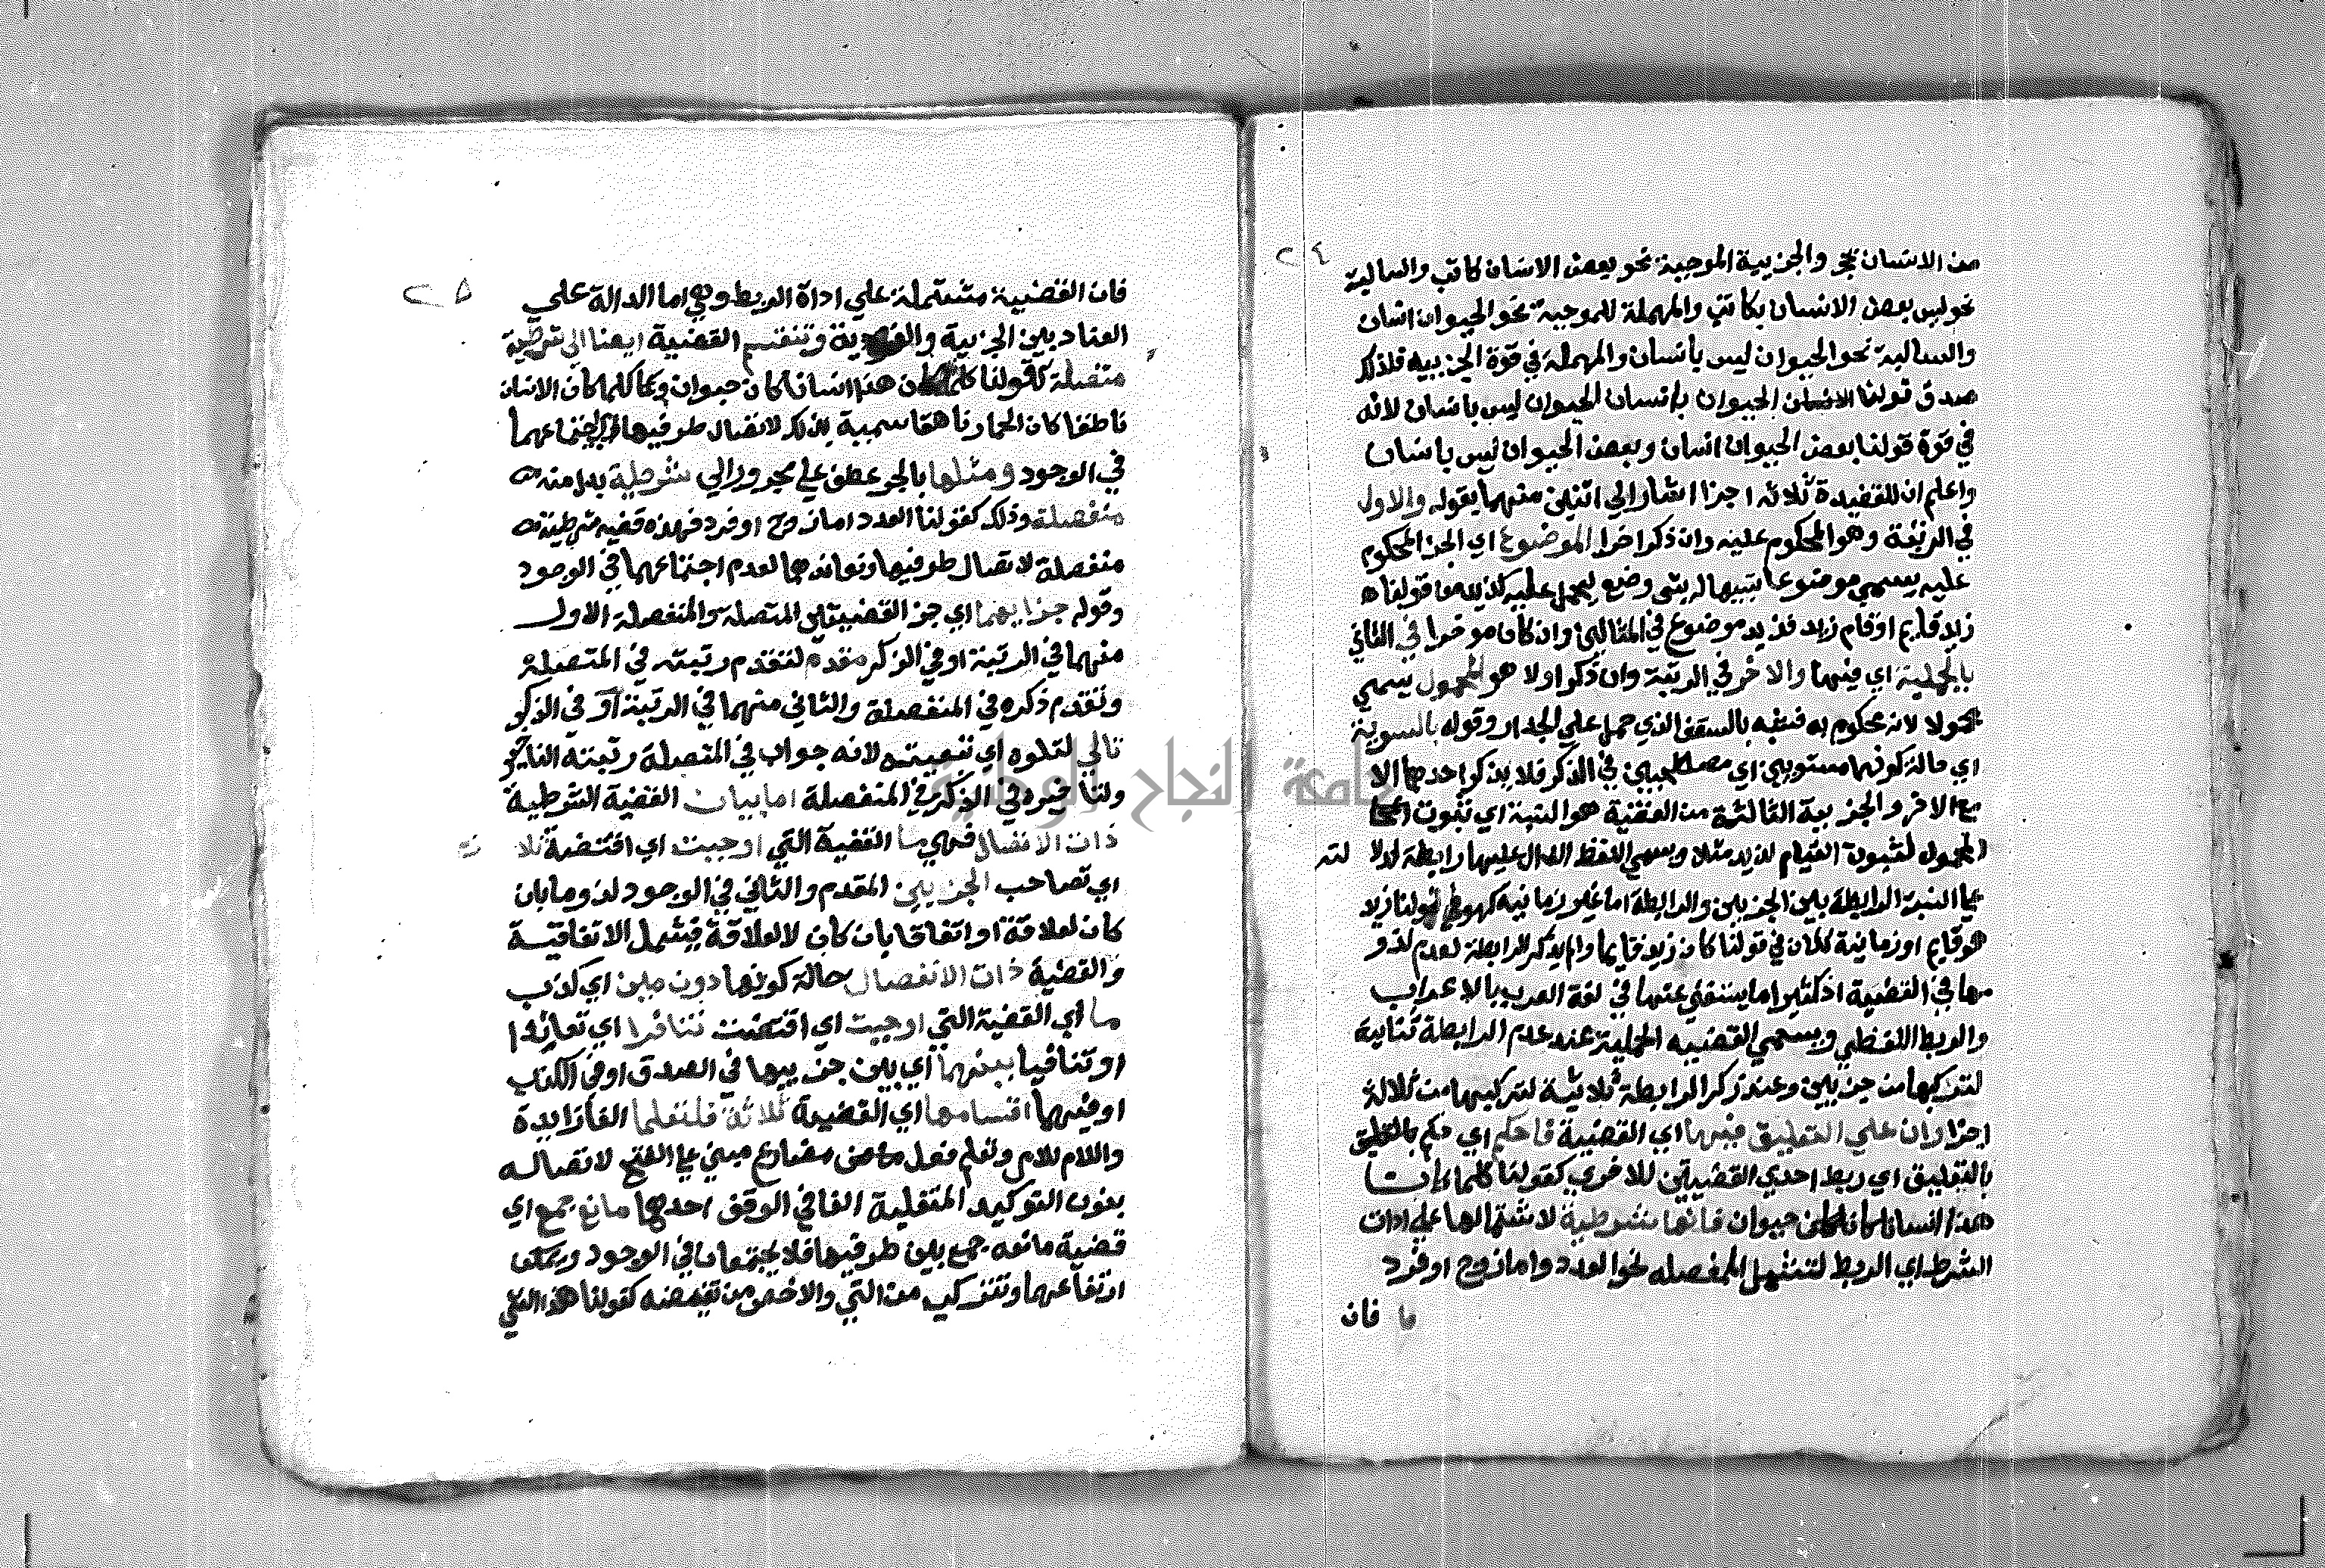 ٢٤
من الانسان بحجر والجزيية الموجبة نحو بعض الانسان كاتب والسالبة
نحو ليس بعض الانسان بكاتب والمهملة الموجبة نحو الحيوان انسان
والسالبة نحو الحيوان ليس بانسان والمهملة في قوة الجزييه فلذلك
صدق قولنا الحيوان بانسان الحيوان ليس بانسان لانه
في قوة قولنا بعض الحيوان انسان وبعض الحيوان ليس بانسان
واعلم ان للقضية ثلاثه اجزا اشار الي اثنين منهما بقوله والاول
في الرتبة وهو المحكوم عليه وان ذكر اخرا الموضوع اي الجز المحكوم
عليه يسمي موضوعا تشبيها له بشي وضع ليحمل عليه كزيد من قولنا
زيد قايم او قام زيد فزيد موضوع في المثالين وان كان موخرا في الثاني
بالحملية اي فيها والاخر في الرتبة وان ذكر اولا هو المحمول يسمي
محمولا لانه محكوم به فشبه بالسقف الذي حمل علي الجدار وقوله بالسوية
اي حالة كونهما مستويين اي مصطحبين في الذكر فلا يذكر احدهما الا
مع الاخر والجز ية الثالثة من القضية هو النسبة اي ثبوت
المحمول كثبوت القيام لزيد مثلا ويسمي اللفظ الدال عليها رابطة لدلا لته
علي النسبة الرابطة بين الجزيين والرابطة اما غير زمانية كهو في قولنا زيد
هو قايم او زمانية ككان في قولنا كان زيد قايما ولم يذكر الرابطة لعدم لزو
مها في القضية اذ كثيرا ما يستغني عنها في لغة العرب بالاعراب
والربط اللفظي ويسمي القضيه الحملية عند عدم الرابطة ثنايية
لتركبها من جزيين وعند ذكر الرابطة ثلاثية لتركيبها من ثلاثة
اجزا وان علي التعليق فيها اي القضية قد حكم اي حكم
بالتعليق اي ربط احدي القضيتين للاخري كقولنا كلما كان
هذا انسانا كان حيوان فانها شرطية لاشتمالها علي ادات
الشرط اي الربط لتشمل المنفصله نحو العدد واما زوج او فرد
فان
٢٥
فان القضية مشتملة علي اداة الربط وهي اما الدالة علي
العناد بين الجزيية والفردية وتنقسم القضية ايضا الي شرطية
متصلة كقولنا كلما كان هذا انسانا كان حيوان وكما كلما كان الانسان
ناطقا كان الحمار ناهقا سميت بذلك لاتصال طرفيها اي اجتماعهما
في الوجود ومثلها بالجر عطف علي مجرور الي شرطية بدل منه
منفصلة وذلك كقولنا العدد اما زوج او فرد فهذه قضيه شرطية
منفصلة لانفصال طرفيها وتعاندهما لعدم اجتماعهما في الوجود
وقوله جزايهما اي جز القضيتين المتصلة والمنفصلة الاول
منهما في الرتبة او في الذكر مقدم لتقدم رتبته في المتصلة
وتقدم ذكره في المنفصلة والثاني منهما في الرتبة او في الذكر
تالي لتلوه اي تبعيته لانه جواب في المتصلة رتبته التاخير
ولتاخيره في الذكر في المنفصلة اما بيان القضية الشرطية
ذات الاتصال فهي ما القضية التي اوجبت اي اقتضة تلا زم
اي تصاحب الجزيين المقدم والثاني في الوجود لزوما بان
كان لعلاقة او اتفاقا بان كان لا لعلاقة فيشمل الاتفاقية
والقضية ذات الانفصال حالة كونها دون مين اي كذب
ما اي القضية التي اوجبت اي اقتضت تنافرا اي تعاندا
او تنافيا بينهما اي بين جزييها في الصدق او في الكذب
او فيهما اقسامها اي القضية ثلاثة فلتعلما الفا زايدة
واللام للامر وتعلم فعل مضارع مبني علي الفتح لاتصاله
بنون التوكيد المنقلبة الفا في الوقف احدها مانع جمع اي
قضية مانعه جمع بين طرفيها فلا يجتمعان في الوجود ويمكن
ارتفاعهما وتتركب من الشي والاخص من نقيضه كقولنا هذا الشي
جامعة النجاح الوطنية